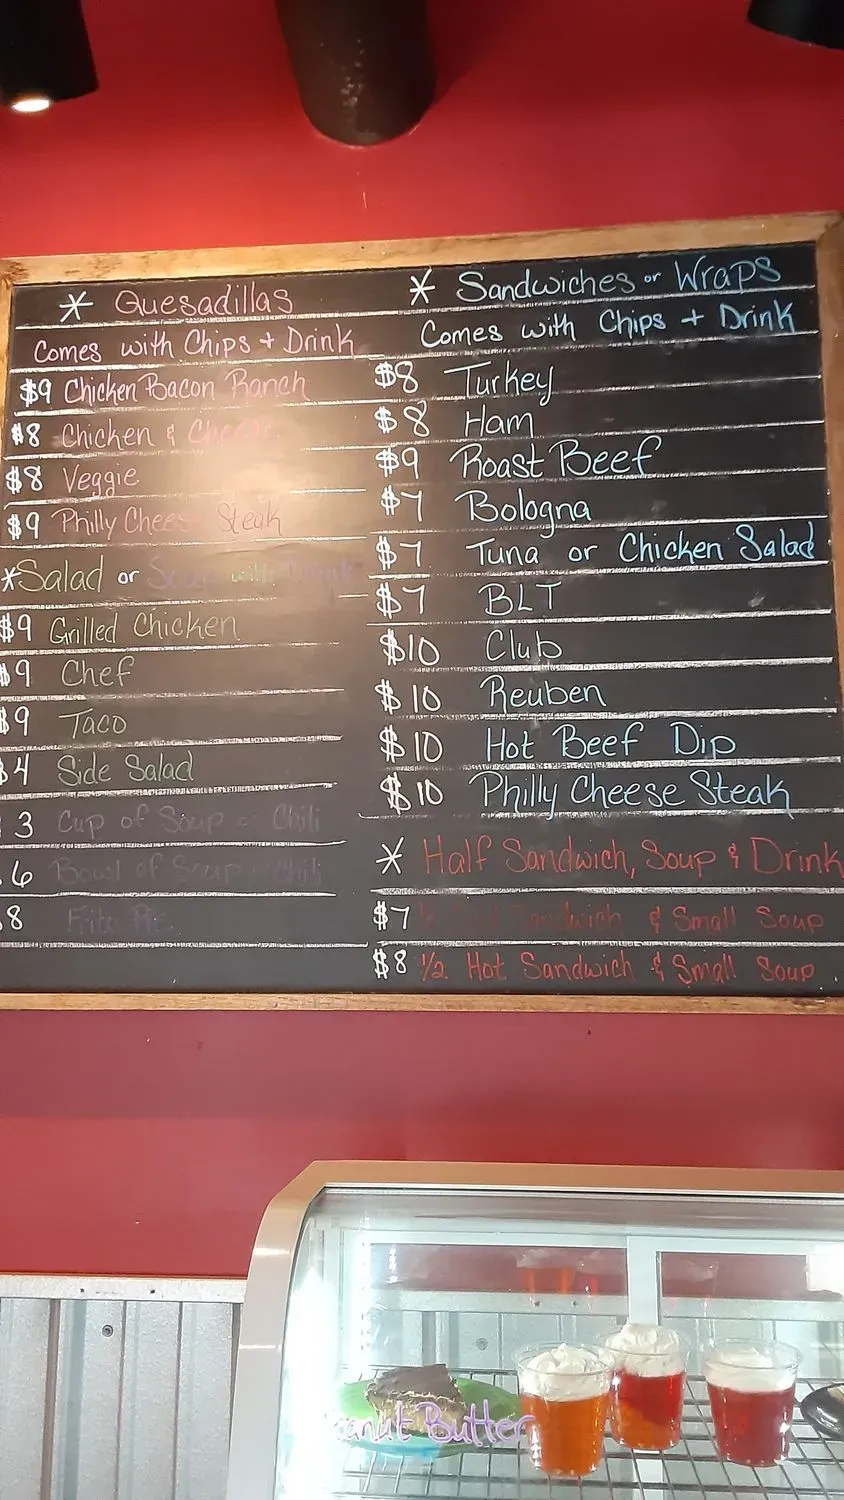 * Quesadillas
Comes with Chips + Drink
$9 Chicken Bacon Ranch
$8 Chicken & Cheese
$8 Veggie
$9 Philly Cheese Steak
*Salad or Soup with Drink
$9 Grilled Chicken
$9 Chef
$9 Taco
$4 Side Salad
3 Cup of Soup or Chili
6 Bowl of Soup Chili
8 Frito Pie
* Sandwiches or Wraps
Comes with Chips + Drink
$8 Turkey
$8 Ham
$9 Roast Beef
$7 Bologna
$7 Tuna or Chicken Salad
$7 BLT
$10 Club
$10 Reuben
$10 Hot Beef Dip
$10 Philly Cheese Steak
* Half Sandwich, Soup & Drink
$7 Sandwich & Small Soup
$8 1/2 Hot Sandwich & Small Soup
anut Butter